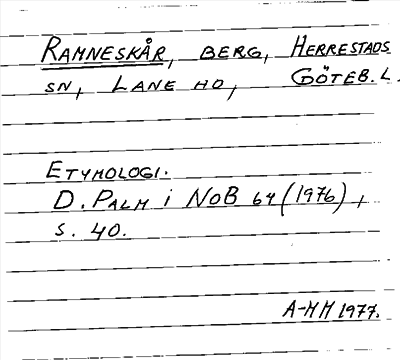 RAMNESKÅR, BERG, HERRESTADS
SN, LANE HD, GÖTEB. L.
ETYMOLOGI.
D. PALM i NoB 64 (1976),
S. 40.
A-MH 1977.